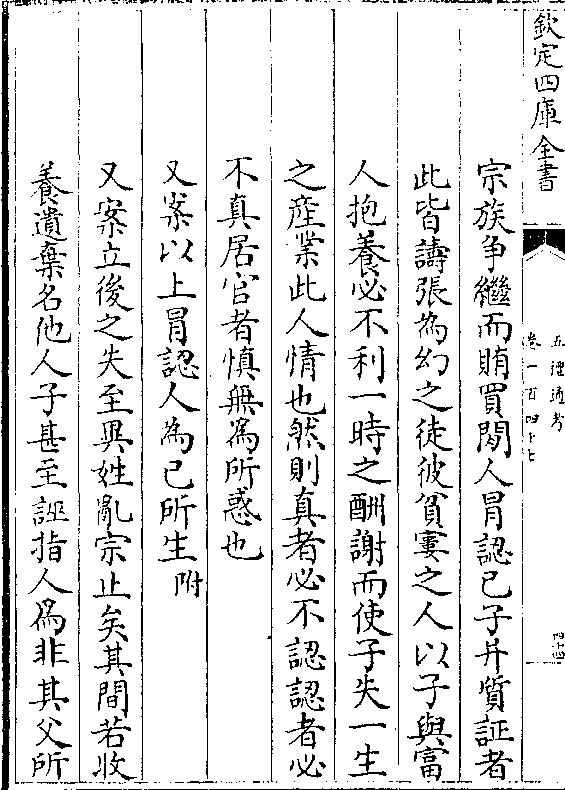 欽定四庫全書
五禮通考
卷一百四十七
四十四
宗族争繼而賄買閒人冒認已子并質証者
此皆譸張為幻之徒彼貧寠之人以子與富
人抱養必不利一時之酬謝而使子失一生
之産業此人情也然則真者必不認認者必
不真居官者慎無為所惑也
又案以上冒認人為已所生附
又案立後之失至異姓亂宗止矣其間若收
養遺棄名他人子甚至誣指人為非其父所